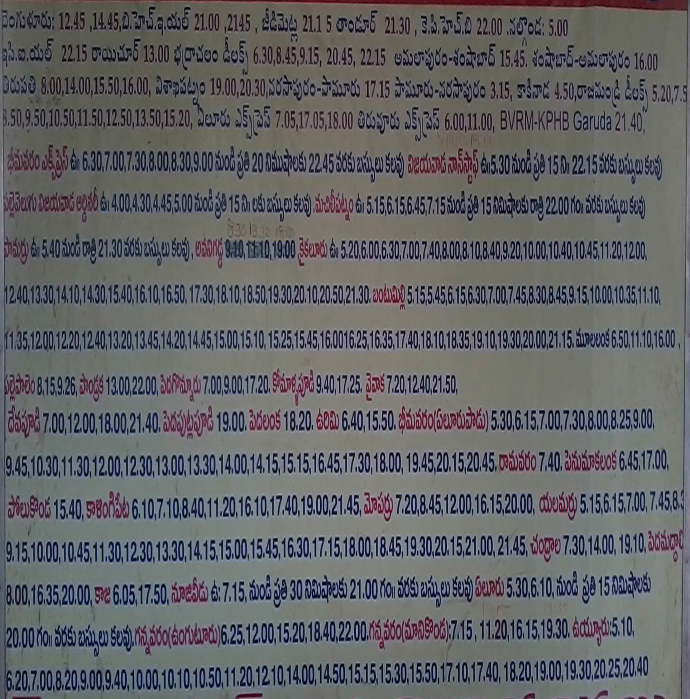 బెంగుళూరు: 12.45 ,14.45,బి.హెచ్.ఇ.యల్ 21.00 ,2145 , జీడిమెట్ల 21.1 5 తాండూర్ 21.30 , కె.పి.హెచ్.బి 22.00 .నల్గొండ: 5.00
ఇసి.ఐ.యల్ 22.15 రాయిచూర్ 13.00 భద్రాచలం డీలక్స్ 6.30,8.45,9.15, 20.45, 22.15 అమలాపురం-శంషాబాద్ 15.45. శంషాబాద్-అమలాపురం 16.00
తిరుపతి 8.00,14.00,15.50,16.00, విశాఖపట్నం 19.00,20.30,నరసాపురం-పామూరు 17.15 పామూరు-నరసాపురం 3.15, కాకినాడ 4.50,రాజమండ్రి డీలక్స్ 5.20,7.5
8.50,9.50,10.50,11.50,12.50,13.50,15.20, ఏలూరు ఎక్స్‌ప్రెస్ 7.05,17.05,18.00 తిరువూరు ఎక్స్‌ప్రెస్ 6.00,11.00, BVRM-KPHB Garuda 21.40,
భీమవరం ఎక్స్‌ప్రెస్ ఉ: 6.30,7.00,7.30,8.00,8.30,9.00 నుండి ప్రతి 20 నిమిషాలకు 22.45 వరకు బస్సులు కలవు విజయవాడ నాన్‌స్టాప్ ఉ:5.30 నుండి ప్రతి 15 ని: 22.15 వరకు బస్సులు కలవు
పల్లెవెలుగు విజయవాడ ఆర్డినరీ ఉ: 4.00,4.30,4.45,5.00 నుండి ప్రతి 15 ని: లకు బస్సులు కలవు మచిలీపట్నం ఉ: 5.15,6.15,6.45,7.15 నుండి ప్రతి 15 నిమిషాలకు రాత్రి 22.00 గం: వరకు బస్సులు కలవు
పామర్రు ఉ: 5.40 నుండి రాత్రి 21.30 వరకు బస్సులు కలవు, అవనిగడ్డ 9.10,11.10,19.00 కైకలూరు ఉ: 5.20,6.00,6.30,7.00,7.40,8.00,8.10,8.40,9.20,10.00,10.40,10.45,11.20,12.00,
12.40,13.30,14.10,14.30,15.40,16.10,16.50, 17.30,18.10,18.50,19.30,20.10,20.50,21.30. బంటుమిల్లి 5.15,5.45,6.15,6.30,7.00,7.45,8.30,8.45,9.15,10.00,10.35,11.10,
11.35,12.00,12.20,12.40,13.20,13.45,14.20,14.45,15.00,15.10, 15.25,15.45,16.0016.25,16.35,17.40,18.10,18.35,19.10,19.30,20.00,21.15. మూలలంక 6.50,11.10,16.00 ,
పల్లెపాలెం 8,15,9.26, పాండ్రక 13.00,22.00, పెదగొన్నూరు 7.00,9.00,17.20. కోమాళ్ళపూడి 9.40,17.25. వైవాక 7.20,12.40,21.50,
దేవపూడి 7.00,12.00,18.00,21.40. పెదపుట్లపూడి 19.00. పెదలంక 18.20. ఉరిమి 6.40,15.50. భీమవరం(పలూరుపాడు) 5.30,6.15,7.00,7.30,8.00,8.25,9.00,
9.45,10.30,11.30,12.00,12.30,13.00,13.30,14.00,14.15,15.15,16.45,17.30,18.00, 19.45,20.15,20.45, రామవరం 7.40. పెనుమాకలంక 6.45,17.00,
పోలుకొండ 15.40, కాళింగిపేట 6.10,7.10,8.40,11.20,16.10,17.40,19.00,21.45, మోపర్రు 7.20,8.45,12.00,16.15,20.00, యలమర్రు 5.15,6.15,7.00, 7.45,8.3
9.15,10.00,10.45,11.30,12.30,13.30,14.15,15.00,15.45,16.30,17.15,18.00,18.45,19.30,20.15,21.00, 21.45, చంద్రాల 7.30,14.00, 19.10, పెదమద్దాలి
8.00,16.35,20.00, కాజ 6.05,17.50, నూజివీడు ఉ: 7.15, నుండి ప్రతి 30 నిమిషాలకు 21.00 గం: వరకు బస్సులు కలవు ఏలూరు 5.30,6.10, నుండి ప్రతి 15 నిమిషాలకు
20.00 గం: వరకు బస్సులు కలవు.గన్నవరం(ఉంగుటూరు)6.25,12.00,15.20,18.40,22.00.గన్నవరం(మానికొండ):7.15 , 11.20,16.15,19.30. ఉయ్యూరు:5.10,
6.20,7.00,8.20,9.00,9.40,10.00,10.10,10.50,11.20,12.10,14.00,14.50,15.15,15.30,15.50,17.10,17.40, 18.20,19.00,19.30,20.25,20.40